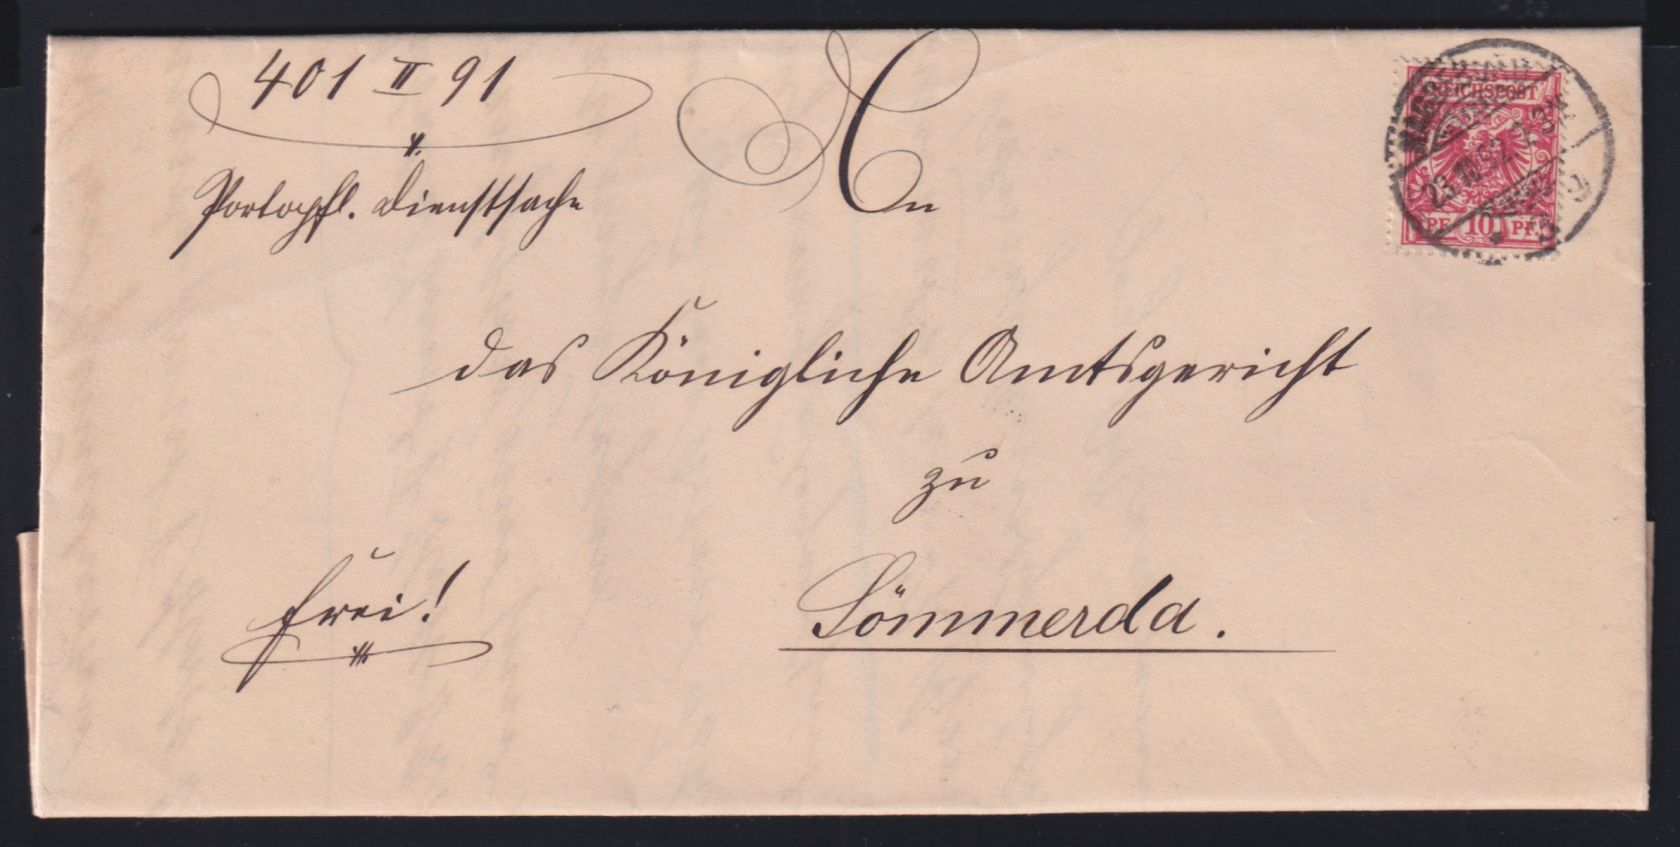 401 II 91
Portopfl. Dienstsache
An
REICHSPOST
PF 10 PF
das Königliche Amtsgericht
zu
Sömmerda.
frei!